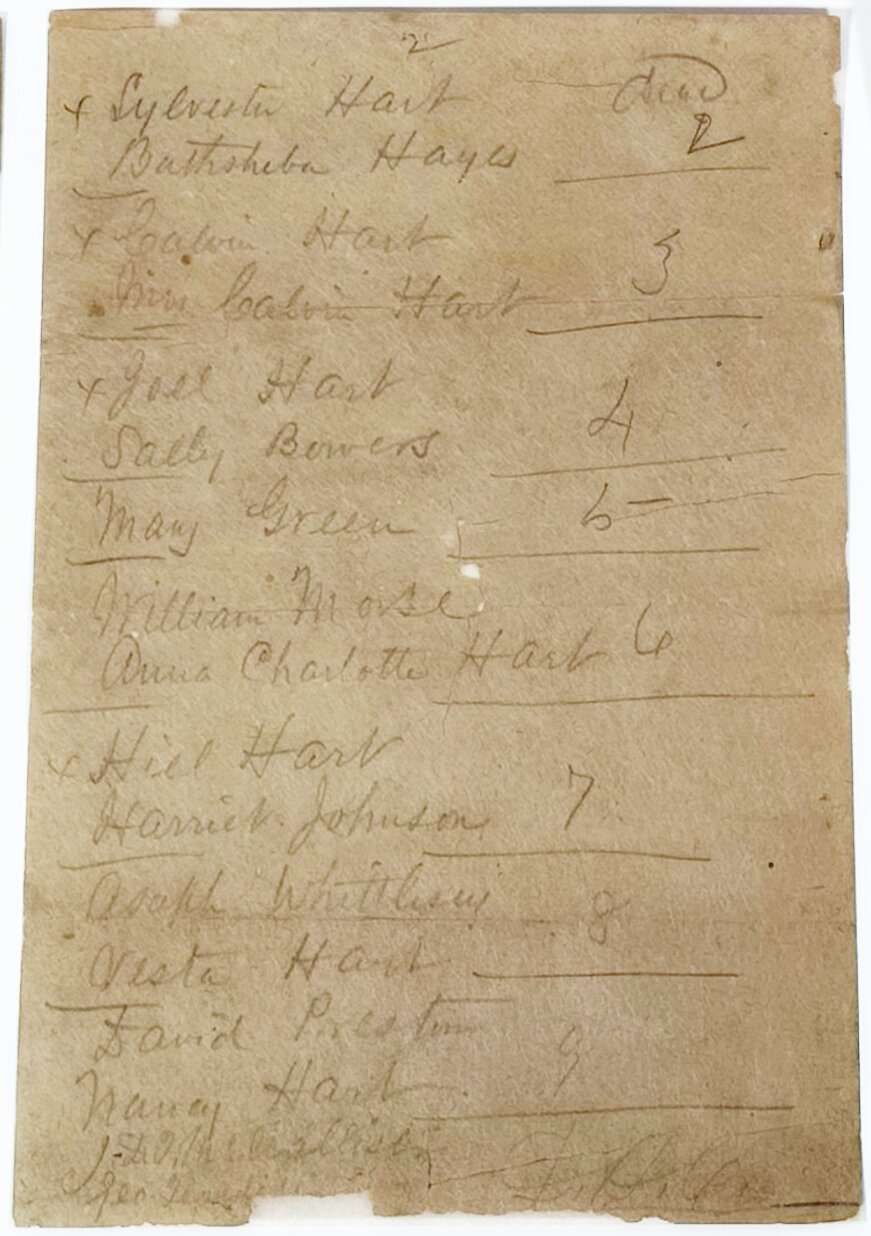 2
x Sylvester Hart Dead
Bathsheba Hayes 2
x Calvin Hart 3
Mrs Calvin Hart
x Joel Hart 4
Sally Bowers
Mary Green 5
William Morse
Anna Charlotte Hart 6
x Hiel Hart
Harriet Johnson 7
Asaph Whittlesey 8
Vesta Hart
David Preston 9
Nancy Hart
Geo